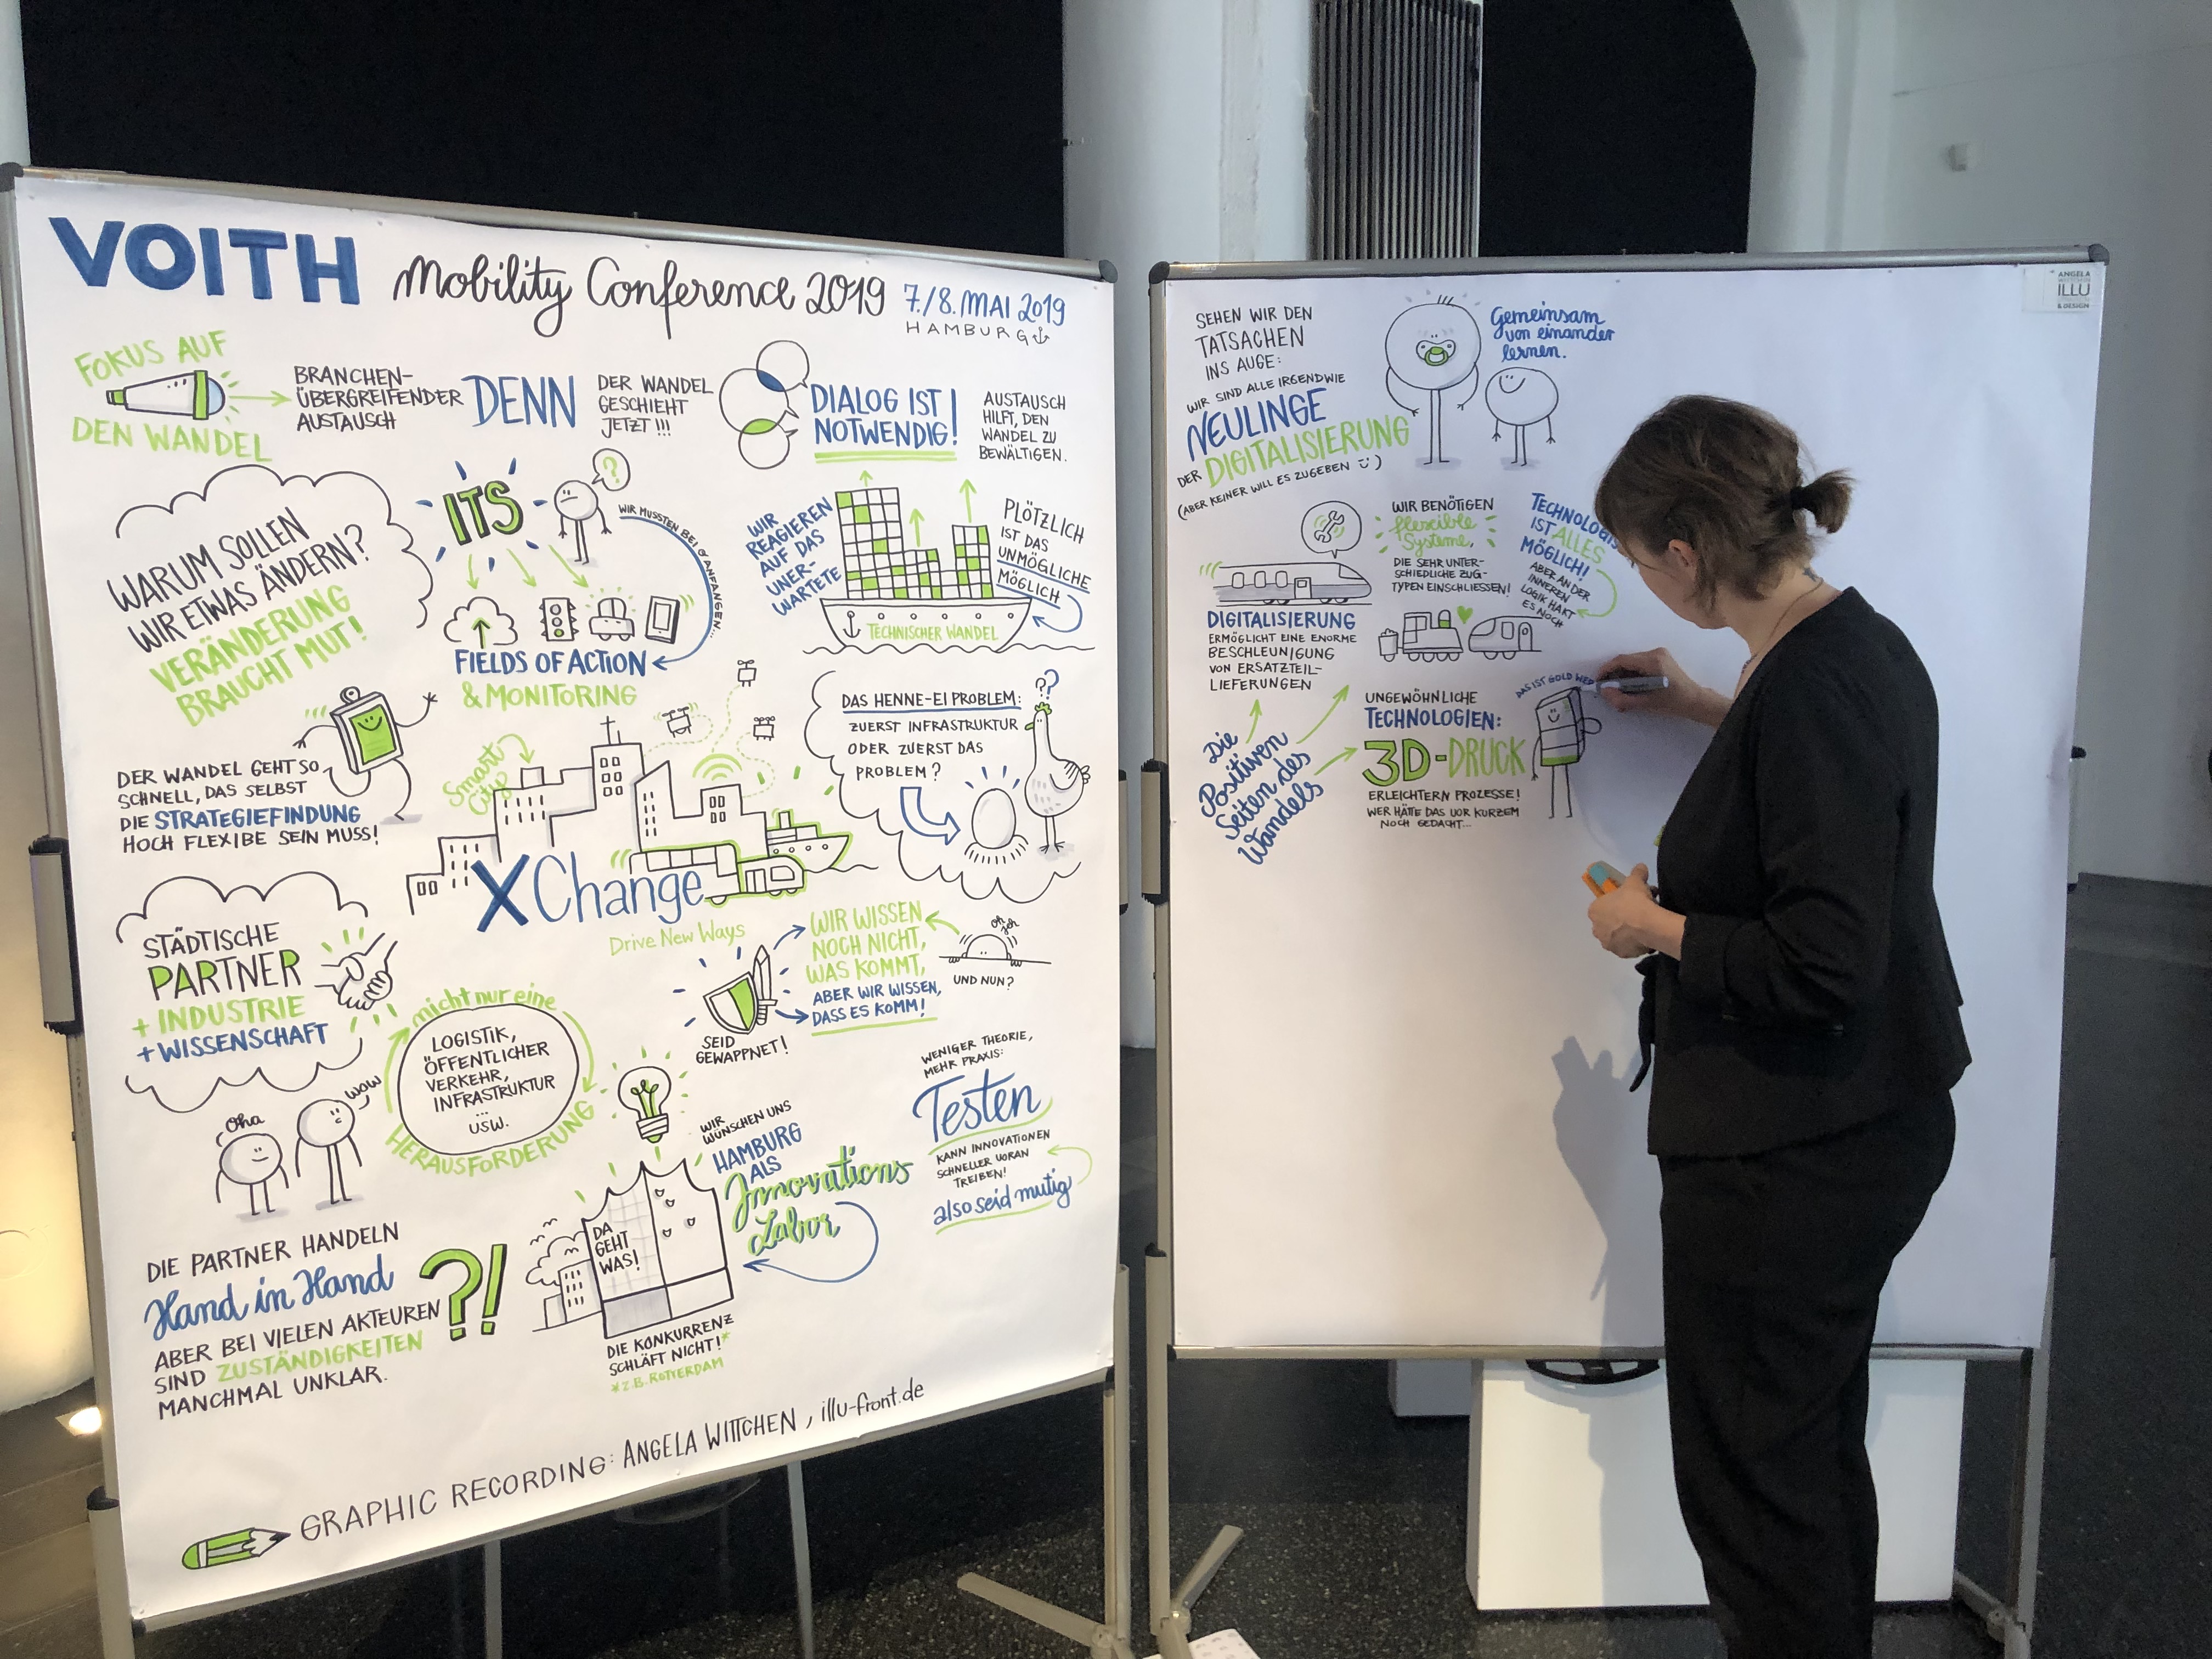 VOITH Mobility Conference 2019 7./8. MAI 2019
HAMBURG
FOKUS AUF
DEN WANDEL
BRANCHEN-
ÜBERGREIFENDER
AUSTAUSCH
DENN
DER WANDEL
GESCHIEHT
JETZT!!!
DIALOG IST
NOTWENDIG!
AUSTAUSCH
HILFT, DEN
WANDEL ZU
BEWÄLTIGEN.
WARUM SOLLEN
WIR ETWAS ÄNDERN?
VERÄNDERUNG
BRAUCHT MUT!
ITS
?
WIR MUSSTEN BEI 0 ANFANGEN...
FIELDS OF ACTION
& MONITORING
WIR
REAGIEREN
AUF DAS
UNER-
WARTETE
PLÖTZLICH
IST DAS
UNMÖGLICHE
MÖGLICH
TECHNISCHER WANDEL
DER WANDEL GEHT SO
SCHNELL, DAS SELBST
DIE STRATEGIEFINDUNG
HOCH FLEXIBE SEIN MUSS!
Smart
City
XChange
Drive New Ways
DAS HENNE-EI PROBLEM:
ZUERST INFRASTRUKTUR
ODER ZUERST DAS
PROBLEM?
??
STÄDTISCHE
PARTNER
+ INDUSTRIE
+ WISSENSCHAFT
Oha
WOW
nicht nur eine
LOGISTIK,
ÖFFENTLICHER
VERKEHR,
INFRASTRUKTUR
...
USW.
HERAUSFORDERUNG
SEID
GEWAPPNET!
WIR WISSEN
NOCH NICHT,
WAS KOMMT,
ABER WIR WISSEN,
DASS ES KOMM!
oh
UND NUN?
WENIGER THEORIE,
MEHR PRAXIS:
Testen
KANN INNOVATIONEN
SCHNELLER VORAN
TREIBEN!
also seid mutig
WIR
WÜNSCHEN UNS
HAMBURG
ALS
Innovations
Labor
DA
GEHT
WAS!
DIE KONKURRENZ
SCHLÄFT NICHT!*
*Z.B. ROTTERDAM
DIE PARTNER HANDELN
Hand in Hand
ABER BEI VIELEN AKTEUREN
SIND ZUSTÄNDIGKEITEN
MANCHMAL UNKLAR.
?!
GRAPHIC RECORDING: ANGELA WITTCHEN, illu-front.de
SEHEN WIR DEN
TATSACHEN
INS AUGE:
WIR SIND ALLE IRGENDWIE
NEULINGE
DER DIGITALISIERUNG
(ABER KEINER WILL ES ZUGEBEN)
Gemeinsam
von einander
lernen.
ANGELA
ILLU
& DESIGN
DIGITALISIERUNG
ERMÖGLICHT EINE ENORME
BESCHLEUNIGUNG
VON ERSATZTEIL-
LIEFERUNGEN
WIR BENÖTIGEN
flexible
Systeme,
DIE SEHR UNTER-
SCHIEDLICHE ZUG-
TYPEN EINSCHLIESSEN!
TECHNOLOGIS
IST ALLES
MÖGLICH!
ABER AN DER
INNEREN
LOGIK HAKT
ES NOCH
Die
Positiven
Seiten des
Wandels
UNGEWÖHNLICHE
TECHNOLOGIEN:
3D-DRUCK
ERLEICHTERN PROZESSE!
WER HÄTTE DAS VOR KURZEM
NOCH GEDACHT...
DAS IST GOLD WER